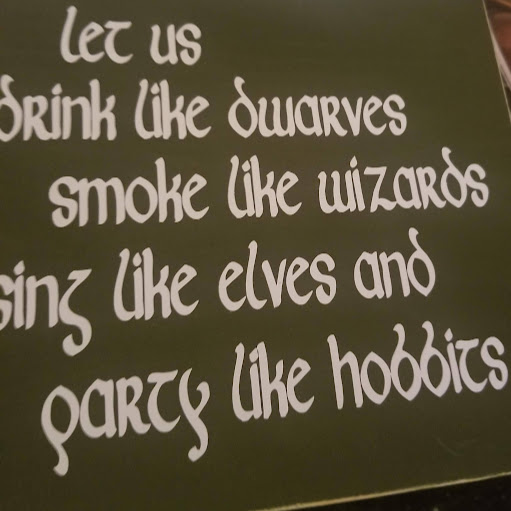 let us
drink like dwarves
smoke like wizards
sing like elves and
party like hobbits